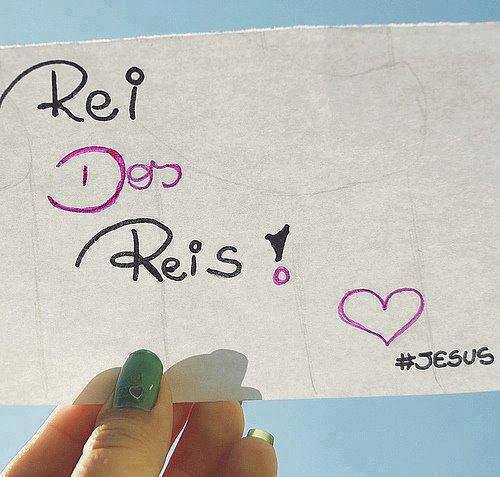 Rei
Dos
Reis!
#JESUS